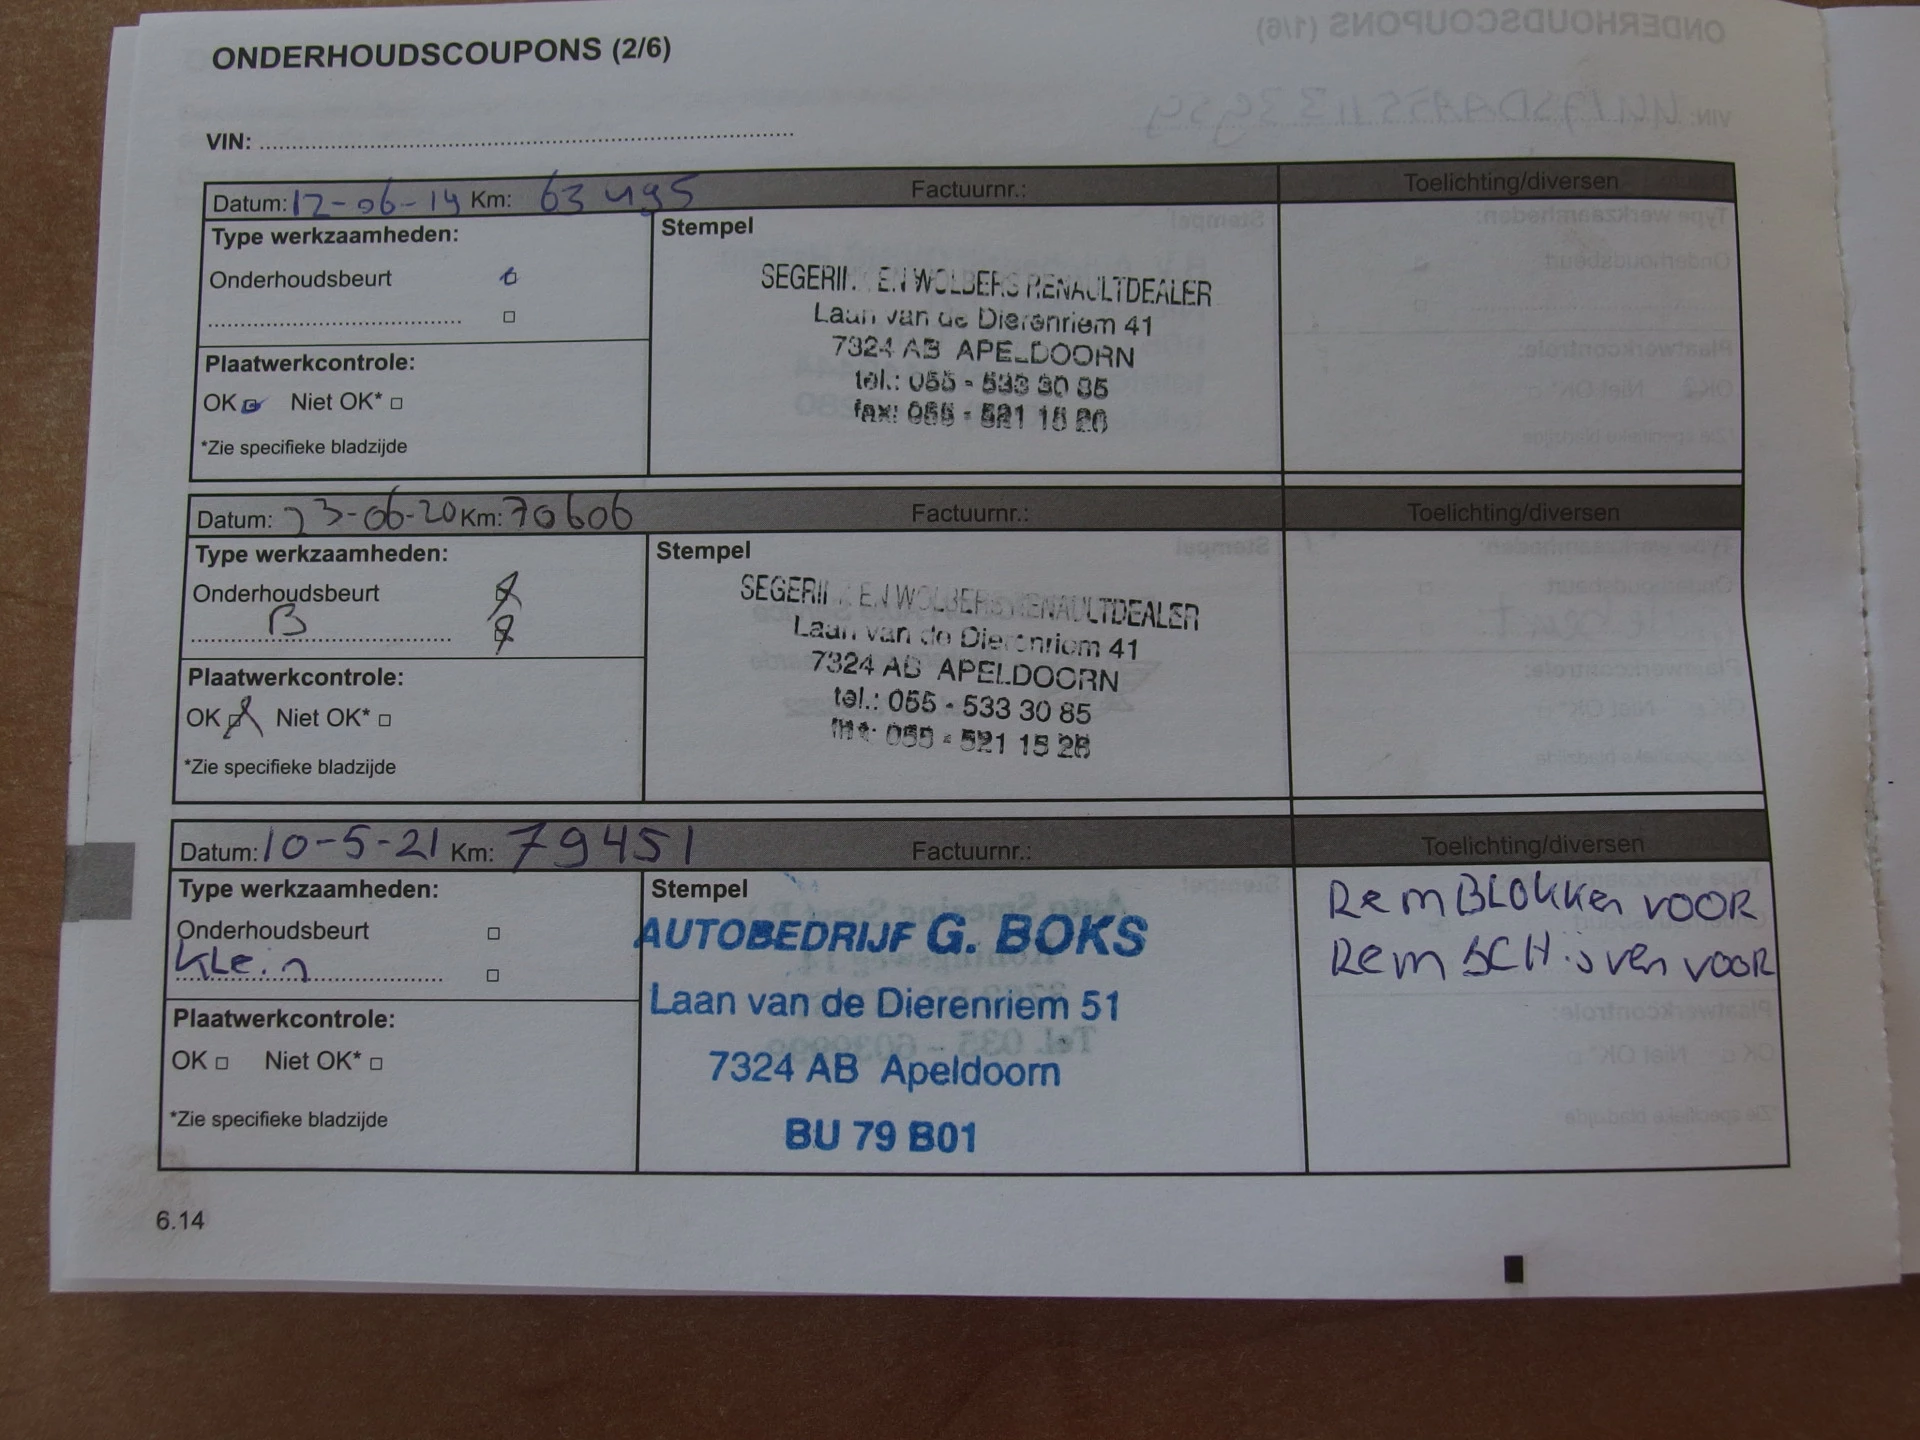 ONDERHOUDSCOUPONS (2/6)
VIN:
Datum: 12-06-19 Km: 63495 Factuurnr.: Toelichting/diversen
Type werkzaamheden:
Stempel
Onderhoudsbeurt
Plaatwerkcontrole:
OK Niet OK*
*Zie specifieke bladzijde
EN WOLBERS RENAULTDEALER
Laan van de Dierenriem 41
7324 AB APELDOORN
tel.: 055 - 533 30 85
fax: 055 - 521 15 26
Datum: 23-06-20 Km: 70606 Factuurnr.: Toelichting/diversen
Type werkzaamheden:
Stempel
Onderhoudsbeurt
B
Plaatwerkcontrole:
OK Niet OK*
*Zie specifieke bladzijde
EN WOLBERS RENAULTDEALER
Laan van de Dierenriem 41
7324 AB APELDOORN
tel.: 055 - 533 30 85
055 - 521 15 26
Datum: 10-5-21 Km: 79451 Factuurnr.: Toelichting/diversen
Type werkzaamheden:
Stempel
Onderhoudsbeurt
KLein
Plaatwerkcontrole:
OK Niet OK*
*Zie specifieke bladzijde
AUTOBEDRIJF G. BOKS
Laan van de Dierenriem 51
7324 AB Apeldoorn
BU 79 B01
RemBLOKKen VOOR
Rem SCHijven VOOR
6.14